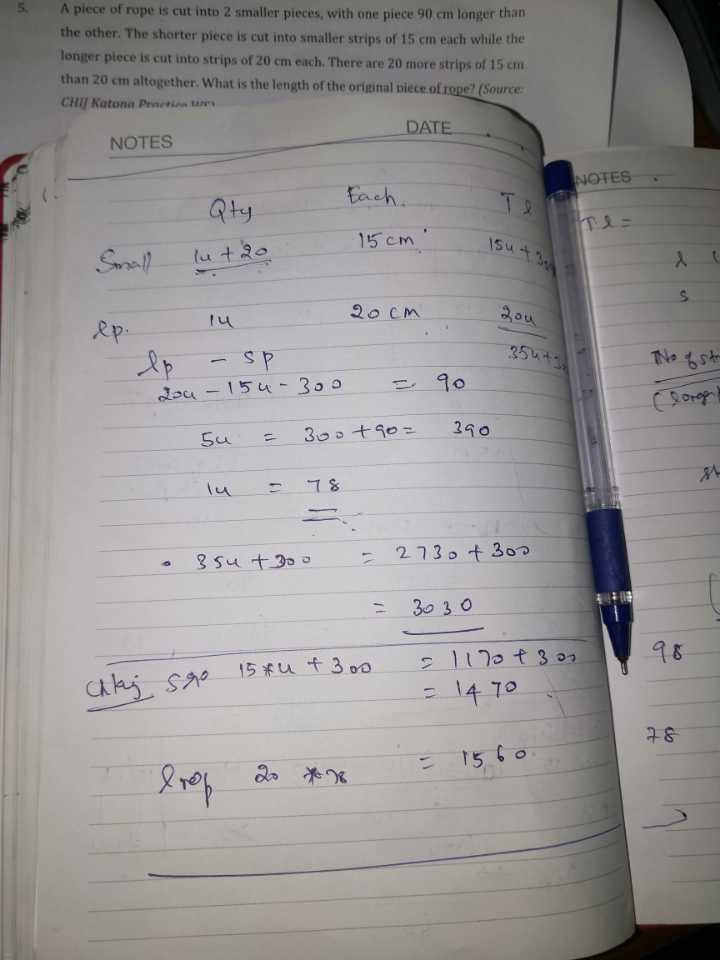 5. A piece of rope is cut into 2 smaller pieces, with one piece 90 cm longer than
the other. The shorter piece is cut into smaller strips of 15 cm each while the
longer piece is cut into strips of 20 cm each. There are 20 more strips of 15 cm
than 20 cm altogether. What is the length of the original piece of rope? (Source:
CHIJ Katong
NOTES DATE
Qty Each. Tl
Small 1u + 20 15 cm 15u +
lp. 1u 20 cm 20u
35u +
lp - sp
20u - 15u - 300 = 90
5u = 300 + 90 = 390
1u = 78
35u + 300 = 2730 + 300
= 3030
15*u + 300 = 1170 + 300
= 1470
lrop 20 * 78 = 1560
NOTES
Tl =
l
s
No of
98
78